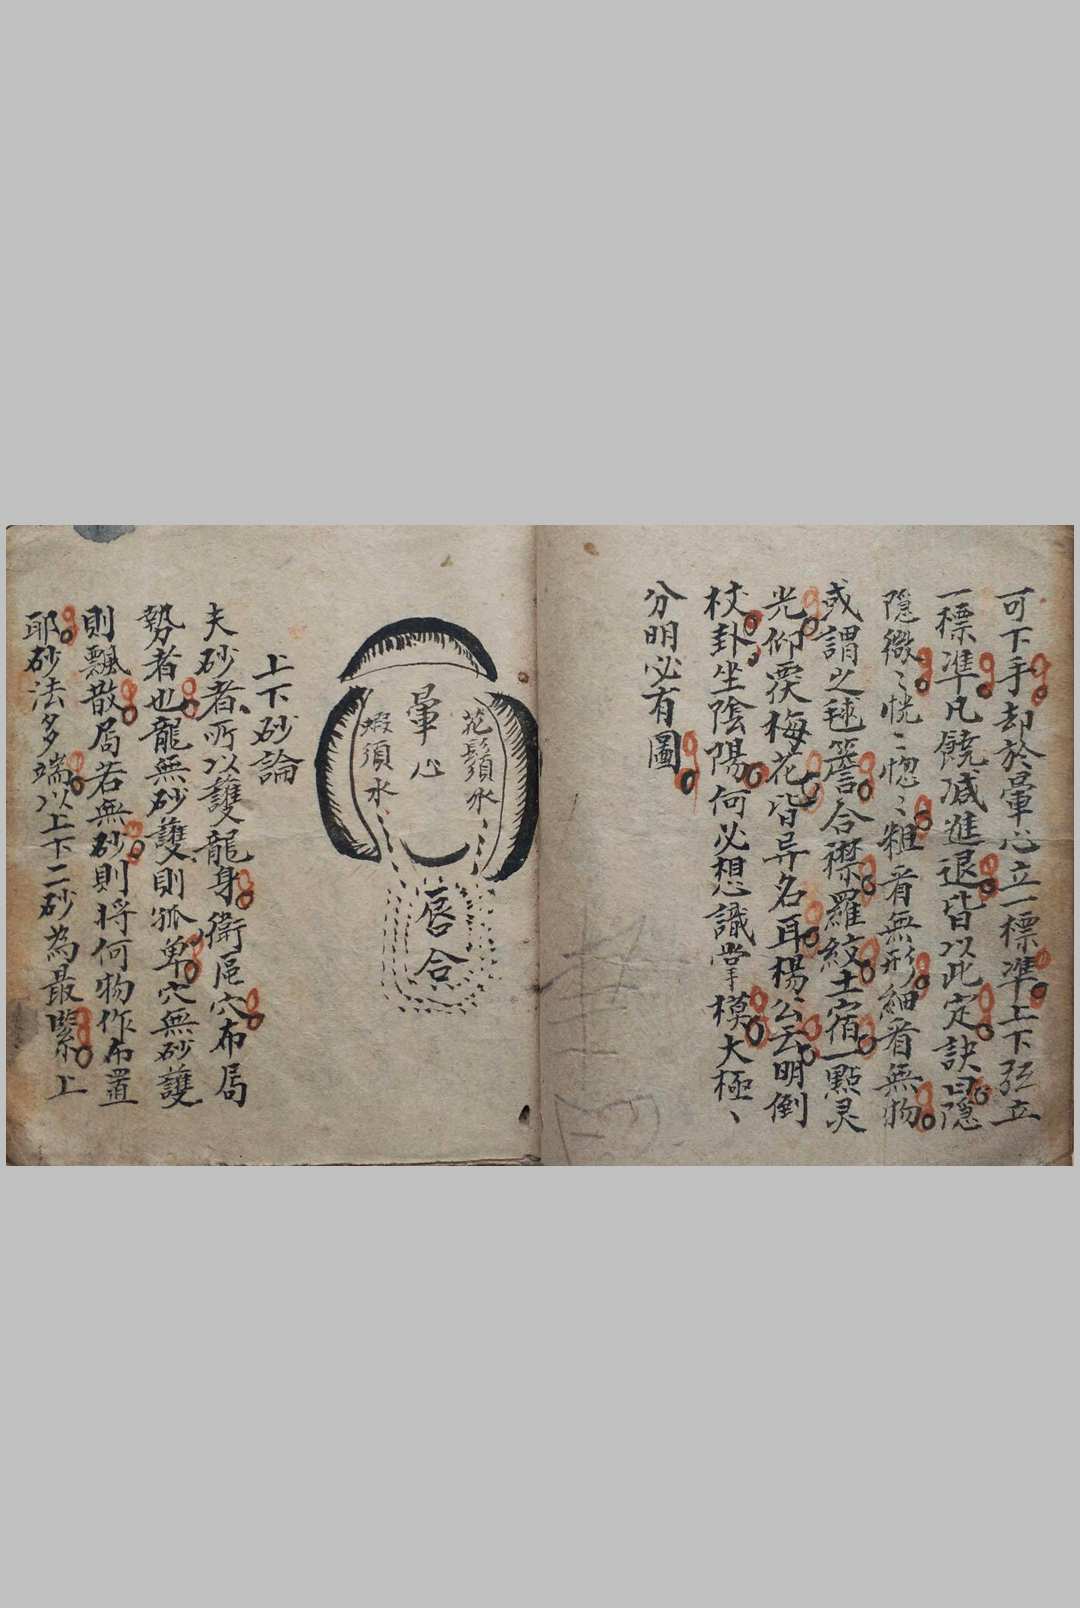 可下手却於暈心立一標準上下弦立
一標準凡饒减進退皆以此定訣曰隱
隱微〻恍〻惚〻粗看無形細看無物
或謂之毬簷合襟羅紋土宿一點灵
光仰覆梅花皆异名耳楊公云明倒
杖卦坐陰陽何必想識掌模大極、
分明必有圖
花鬚水
暈心
蝦須水
唇合
上下砂論
夫砂者所以護龍身衛區穴布局
勢者也龍無砂護則孤單穴無砂護
則飄散局若無砂則将何物作布置
耶砂法多端以上下二砂為最緊上